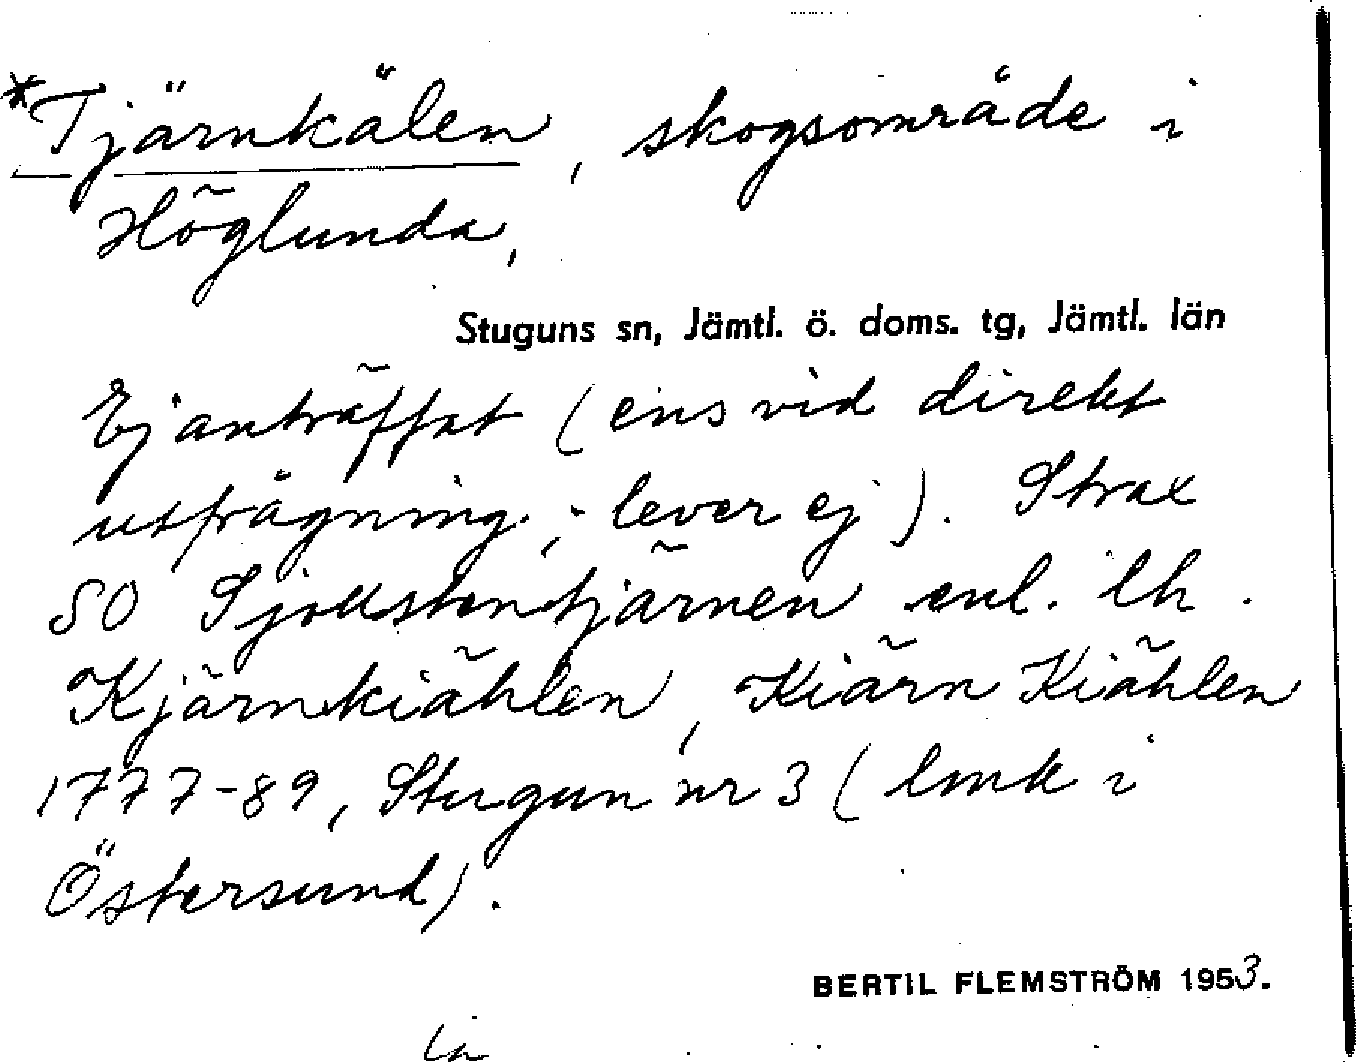 *Tjärnkälen, skogsområde i
Höglunda,
Stuguns sn, Jämtl. ö. doms. tg, Jämtl. län
Ej anträffat (ens vid direkt
utfrågning; lever ej). Strax
SO Sjoustentjärnen enl. lh.
Kjärnkiählen, Kiärn Kiählen
1777-89, Stugun nr 3 (lmk i
Östersund).
BERTIL FLEMSTRÖM 1953.